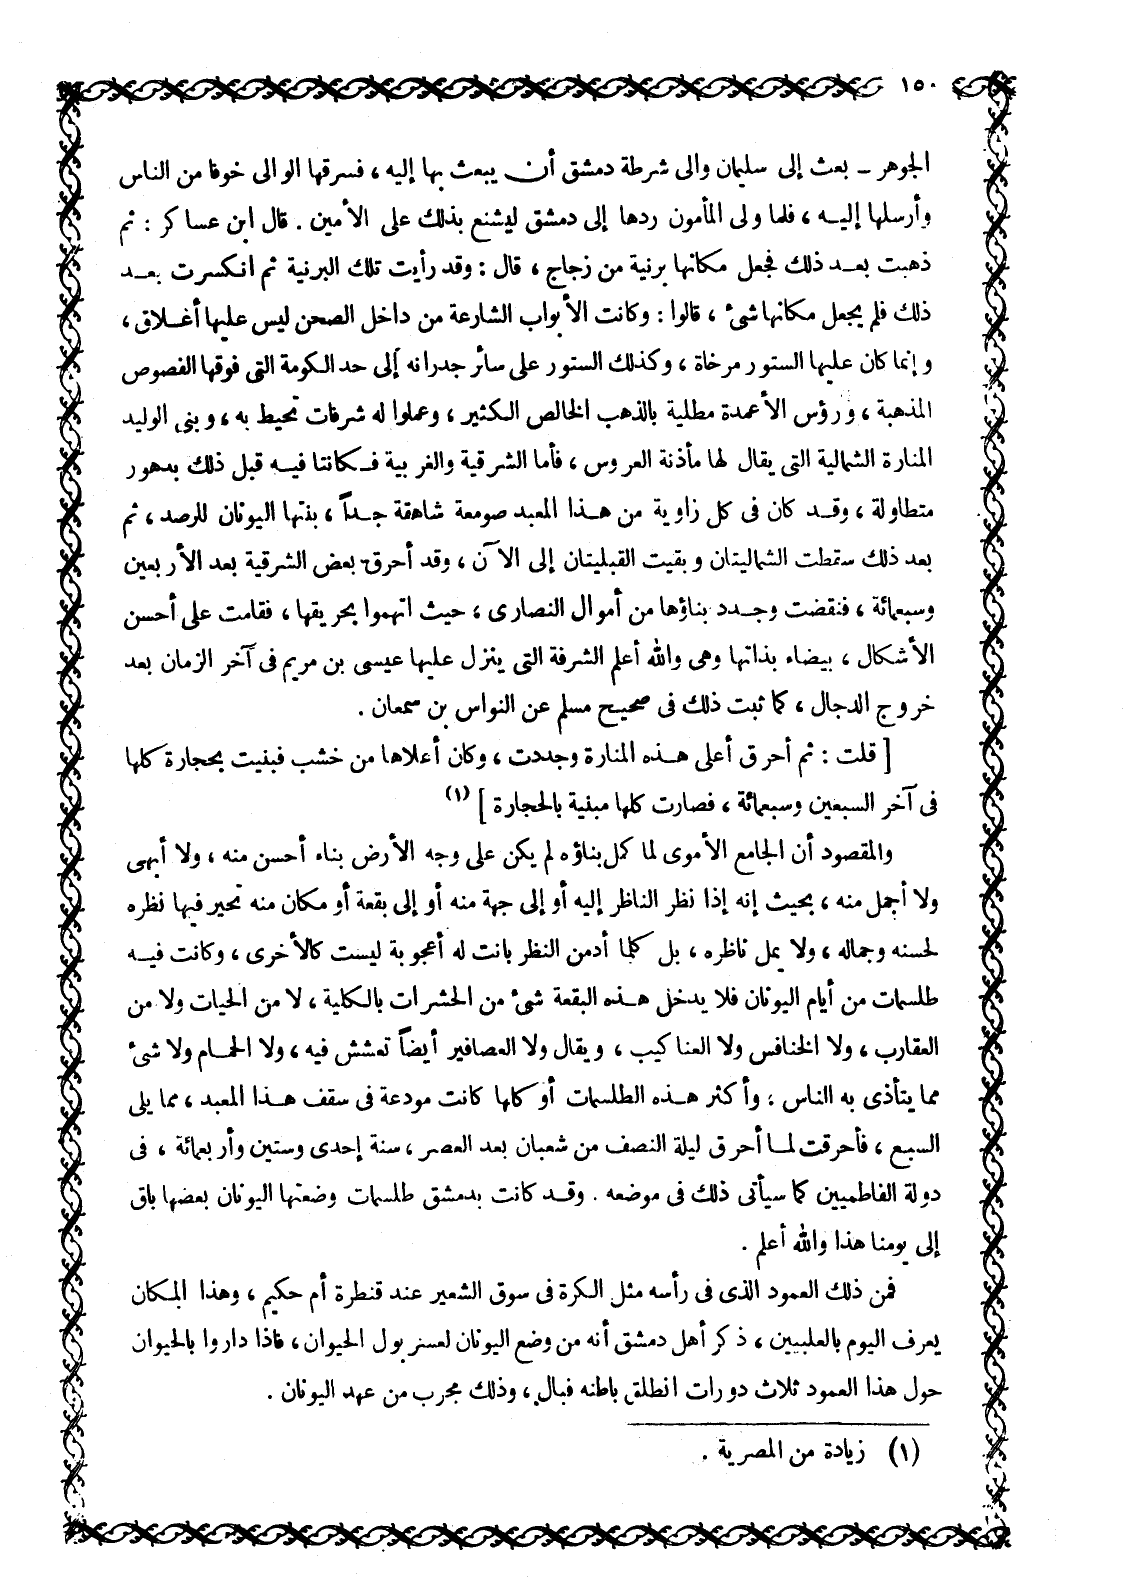 ١٥٠
الجوهر - بعث إلى سليمان والى شرطة دمشق أن يبعث بها إليه ، فسرقها الوالى خوفا من الناس
وأرسلها إليه ، فلما ولى المأمون ردها إلى دمشق ليشنع بذلك على الأمين . قال ابن عساكر : ثم
ذهبت بعد ذلك فجعل مكانها برنية من زجاج ، قال : وقد رأيت تلك البرنية ثم انكسرت بعد
ذلك فلم يجعل مكانها شئ ، قالوا : وكانت الأبواب الشارعة من داخل الصحن ليس عليها أغلاق ،
وإنما كان عليها الستور مرخاة ، وكذلك الستور على سائر جدرانه إلى حد الكومة التى فوقها الفصوص
المذهبة ، ورؤس الأعمدة مطلية بالذهب الخالص الكثير ، وعملوا له شرفات تحيط به ، وبنى الوليد
المنارة الشمالية التى يقال لها مأذنة العروس ، فأما الشرقية والغربية فكانتا فيه قبل ذلك بدهور
متطاولة ، وقد كان فى كل زاوية من هذا المعبد صومعة شاهقة جداً ، بنتها اليونان للرصد ، ثم
بعد ذلك سقطت الشماليتان وبقيت القبليتان إلى الآن ، وقد أحرق بعض الشرقية بعد الأربعين
وسبعمائة ، فنقضت وجدد بناؤها من أموال النصارى ، حيث اتهموا بحريقها ، فقامت على أحسن
الأشكال ، بيضاء بذاتها وهى والله أعلم الشرفة التى ينزل عليها عيسى بن مريم فى آخر الزمان بعد
خروج الدجال ، كما ثبت ذلك فى صحيح مسلم عن النواس بن سمعان .
[ قلت : ثم أحرق أعلى هذه المنارة وجددت ، وكان أعلاها من خشب فبنيت بحجارة كلها
فى آخر السبعين وسبعمائة ، فصارت كلها مبنية بالحجارة ] (١)
والمقصود أن الجامع الأموى لما كمل بناؤه لم يكن على وجه الأرض بناء أحسن منه ، ولا أبهى
ولا أجمل منه ، بحيث إنه إذا نظر الناظر إليه أو إلى جهة منه أو إلى بقعة أو مكان منه تحير فيها نظره
لحسنه وجماله ، ولا يمل ناظره ، بل كلما أدمن النظر بانت له أعجوبة ليست كالأخرى ، وكانت فيه
طلسمات من أيام اليونان فلا يدخل هذه البقعة شئ من الحشرات بالكلية ، لا من الحيات ولا من
العقارب ، ولا الخنافس ولا العناكيب ، ويقال ولا العصافير أيضاً تعشش فيه ، ولا الحمام ولا شئ
مما يتأذى به الناس ، وأكثر هذه الطلسمات أو كلها كانت مودعة فى سقف هذا المعبد ، مما يلى
السبع ، فأحرقت لما أحرق ليلة النصف من شعبان بعد العصر ، سنة إحدى وستين وأربعمائة ، فى
دولة الفاطميين كما سيأتى ذلك فى موضعه . وقد كانت بدمشق طلسمات وضعتها اليونان بعضها باق
إلى يومنا هذا والله أعلم .
فمن ذلك العمود الذى فى رأسه مثل الكرة فى سوق الشعير عند قنطرة أم حكيم ، وهذا المكان
يعرف اليوم بالعلبيين ، ذكر أهل دمشق أنه من وضع اليونان لعسر بول الحيوان ، فاذا داروا بالحيوان
حول هذا العمود ثلاث دورات انطلق باطنه فبال ، وذلك مجرب من عهد اليونان .
(١) زيادة من المصرية .